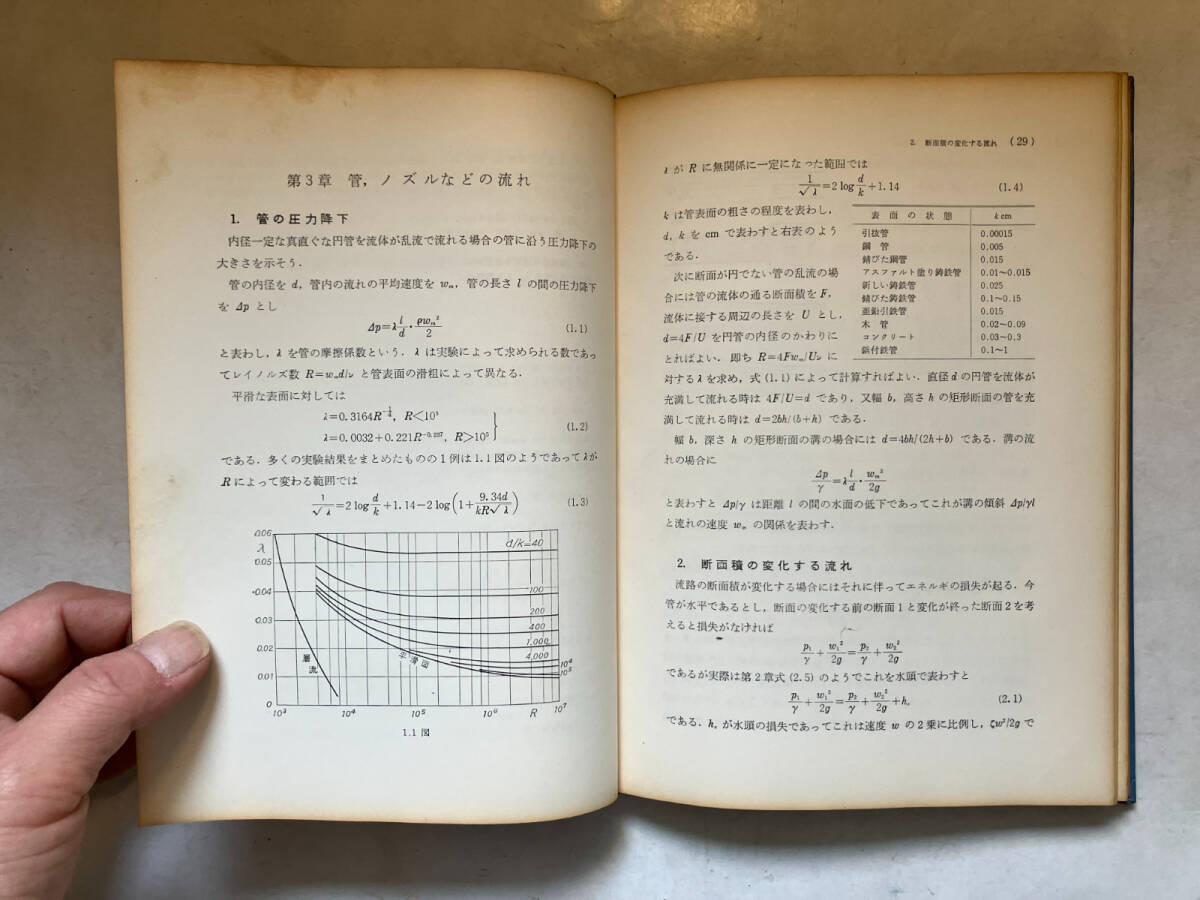 第3章 管，ノズルなどの流れ
1. 管の圧力降下
内径一定な真直ぐな円管を流体が乱流で流れる場合の管に沿う圧力降下の
大きさを示そう．
管の内径を d，管内の流れの平均速度を wₘ，管の長さ l の間の圧力降下
を Δp とし
Δp=λ l/d・ρwₘ²/2 (1.1)
と表わし，λ を管の摩擦係数という．λ は実験によって求められる数であっ
てレイノルズ数 R=wₘd/ν と管表面の滑粗によって異なる．
平滑な表面に対しては
λ=0.3164R^(-1/4), R<10⁵
λ=0.0032+0.221R^(-0.237), R>10⁵ (1.2)
である．多くの実験結果をまとめたものの1例は1.1図のようであってλが
Rによって変わる範囲では
1/√λ=2 log d/k+1.14−2 log(1+9.34d/(kR√λ)) (1.3)
0.06
λ
0.05
0.04
0.03
0.02
0.01
0
d/k=40
100
200
400
1,000
4,000
10⁴
10⁵
層流
平滑面
10³ 10⁴ 10⁵ 10⁶ R 10⁷
1.1 図
2. 断面積の変化する流れ (29)
λ が R に無関係に一定になった範囲では
1/√λ=2 log d/k+1.14 (1.4)
k は管表面の粗さの程度を表わし，
d, k を cm で表わすと右表のよう
である．
次に断面が円でない管の乱流の場
合には管の流体の通る断面積を F,
流体に接する周辺の長さを U とし，
d=4F/U を円管の内径のかわりに
とればよい．即ち R=4Fwₘ/Uν に
表面の状態 k cm
引抜管 0.00015
鋼管 0.005
錆びた鋼管 0.015
アスファルト塗り鋳鉄管 0.01~0.015
新しい鋳鉄管 0.025
錆びた鋳鉄管 0.1~0.15
亜鉛引鉄管 0.015
木管 0.02~0.09
コンクリート 0.03~0.3
鋲付鉄管 0.1~1
対する λ を求め，式 (1.1) によって計算すればよい．直径 d の円管を流体が
充満して流れる時は 4F/U=d であり，又幅 b, 高さ h の矩形断面の管を充
満して流れる時は d=2bh/(b+h) である．
幅 b, 深さ h の矩形断面の溝の場合には d=4bh/(2h+b) である．溝の流
れの場合に
Δp/γ=λ l/d・wₘ²/2g
と表わすと Δp/γ は距離 l の間の水面の低下であってこれが溝の傾斜 Δp/γl
と流れの速度 wₘ の関係を表わす．
2. 断面積の変化する流れ
流路の断面積が変化する場合にはそれに伴ってエネルギの損失が起る．今
管が水平であるとし，断面の変化する前の断面1と変化が終った断面2を考
えると損失がなければ
p₁/γ+w₁²/2g=p₂/γ+w₂²/2g
であるが実際は第2章式 (2.5) のようでこれを水頭で表わすと
p₁/γ+w₁²/2g=p₂/γ+w₂²/2g+hₑ (2.1)
である．hₑ が水頭の損失であってこれは速度 w の2乗に比例し，ζw²/2g で